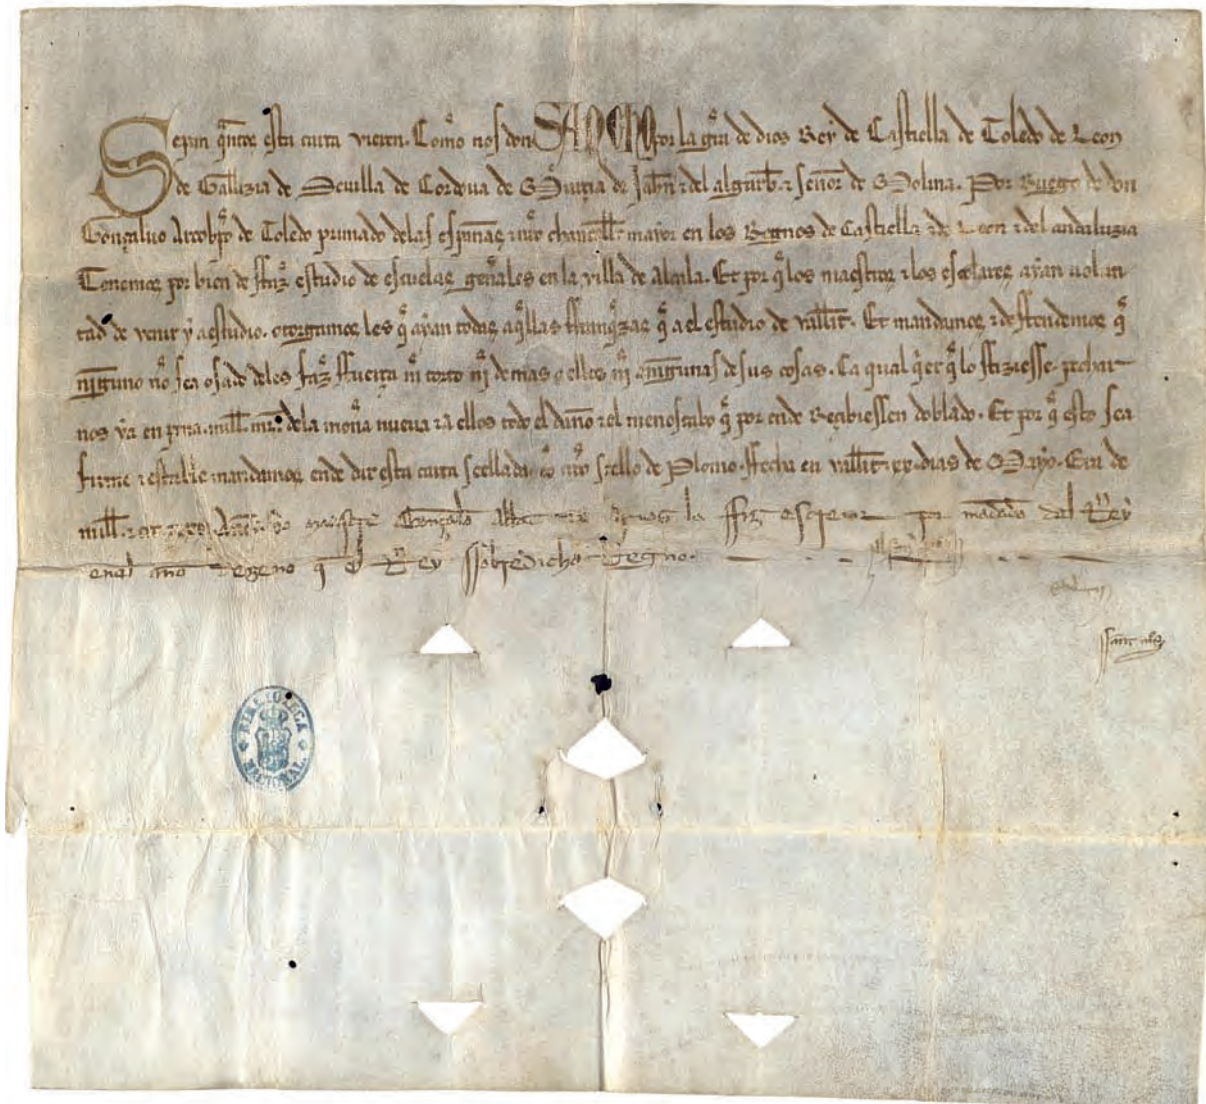 Sepan q̃ntos esta carta vieren. Com̃o nos don SANCHO por la gr̃a de dios Rey de Castiella de Toledo de Leon
de Gallizia de Seuilla de Cordoua de Murçia de Jahen ⁊ del algarbe. ⁊ señor de Molina. Por Ruego de don
Gonçaluo Arçob̃po de Toledo primado delas españas ⁊ nr̃o chançell̃. mayor en los Regnos de Castiella ⁊ de Leon ⁊ del andaluzia
Tenemos por bien de ffaz̃ estudio de escuelas gen̄ales en la villa de Alcala. Et por q̃ los maestros ⁊ los escolares ayan uolun
tad de venir y a estudio. otorgamos les q̃ ayan todas aq̃llas ffranq̃zas q̃ a el estudio de vallit. Et mandamos ⁊ deffendemos q̃
ninguno nõ sea osado deles faz̃ ffuerça nĩ torto nĩ demas a ellos nĩ a ningunas de sus cosas. Ca qual q̃er q̃ lo ffiziesse. pechar
nos ya en pena. mill. mr̃. dela mon̄a nueua ⁊ a ellos todo el daño ⁊ el menoscabo q̃ por ende Reçibiessen doblado. Et por q̃ esto sea
firme ⁊ estable mandamos ende dar esta carta seellada cõ nr̃o seello de Plomo. ffecha en vallit. xx. dias de Mayo. Era de
mill. ⁊ ccc ⁊ Yo maestre Gonçalo Abbat de Aruas la ffiz escreuir por mãdado del Rey
enel año dezeno q̃ el Rey ssobredicho Regno.
BIBLIOTECA NACIONAL